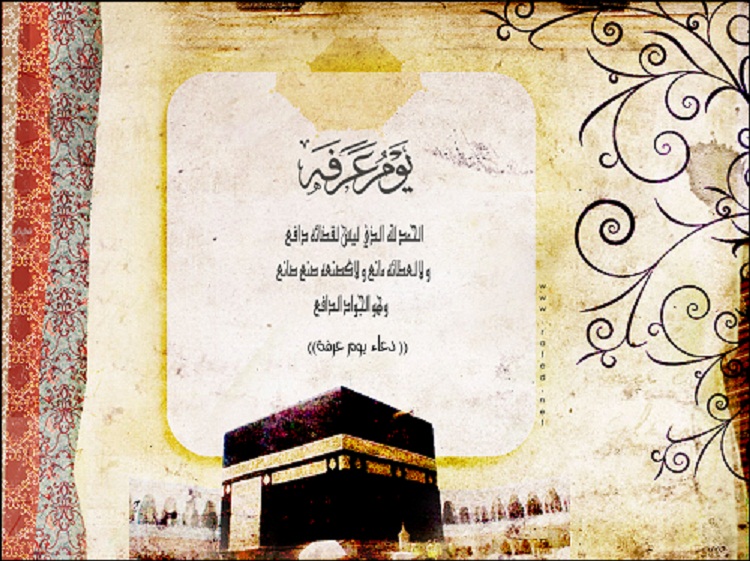 يَوْمُ عَرَفَه
الحمد لله الذي ليس لقضائه دافع
و لا لعطائه مانع و لا كصنعه صنع صانع
وهو الجواد الدافع
(( دعاء يوم عرفة ))
www.rafed.net